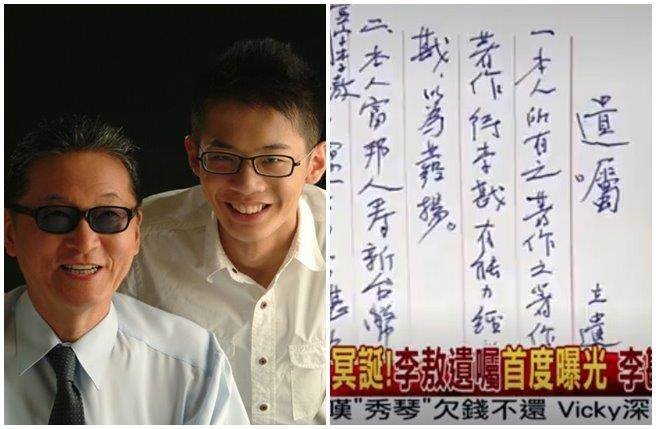 遺囑。
立遺
一本人所有之著作之著作
著作李戡有能力經
戡,以為揚。
二、本人富邦人寿新台幣
冥誕!李敖遺囑首度曝光 李
嘆"秀琴"欠錢不還 Vicky深